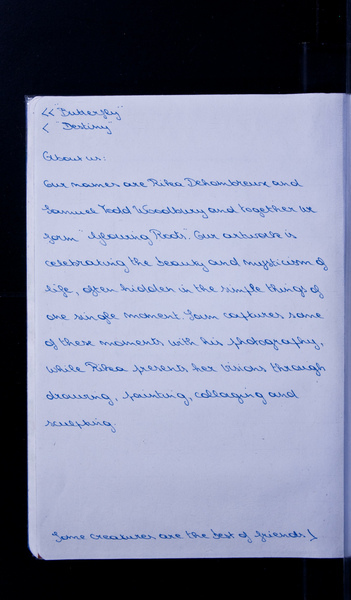 << "Butterfly"
< "Destiny"
About us:
Our names are Rika Dehombreux and
Samuel Todd Woodbury and together we
form "Glowing Roots". Our artwork is
celebrating the beauty and mysticism of
life, often hidden in the simple things of
one single moment. Sam captures some
of these moments with his photography,
while Rika presents her visions through
drawing, painting, collaging and
sculpting.
Some creatures are the best of friends!